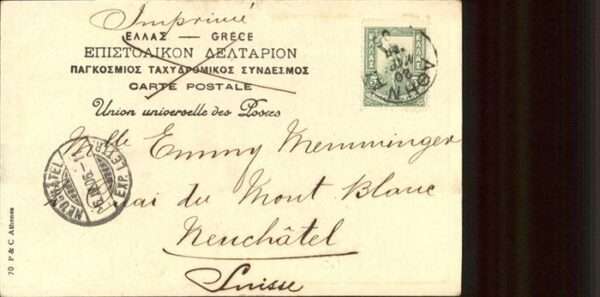 Imprimé
ΕΛΛΑΣ — GRÈCE
ΕΠΙΣΤΟΛΙΚΟΝ ΔΕΛΤΑΡΙΟΝ
ΠΑΓΚΟΣΜΙΟΣ ΤΑΧΥΔΡΟΜΙΚΟΣ ΣΥΝΔΕΣΜΟΣ
CARTE POSTALE
Union universelle des Postes
ΕΛΛΑΣ
ΑΘΗΝΑΙ
Mlle Emmy Memminger
Quai du Mont Blanc
Neuchâtel
Suisse
NEUCHÂTEL
EXP. LETTR.
70 P & C Athènes